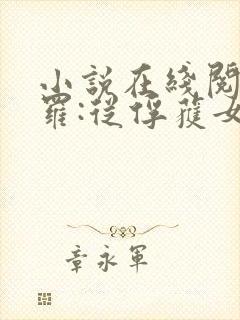 小説在綫閱
羅:從俘獲女
章永軍